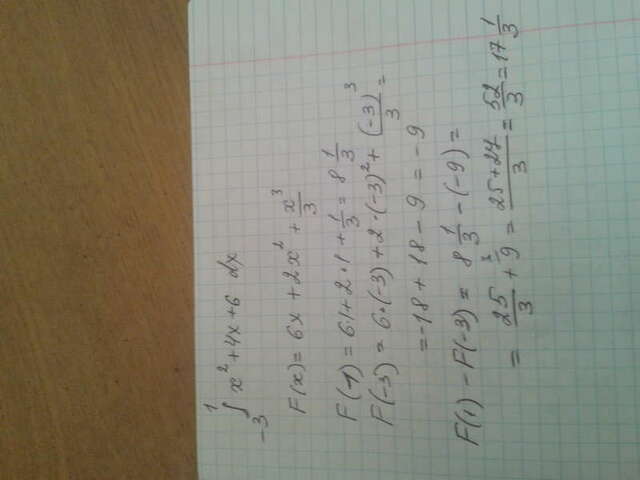 ∫₋₃¹ x² + 4x + 6 dx
F(x) = 6x + 2x² + x³/3
F(1) = 6·1 + 2·1 + 1/3 = 8 1/3
F(-3) = 6·(-3) + 2·(-3)² + (-3)³/3 =
= -18 + 18 - 9 = -9
F(1) - F(-3) = 8 1/3 - (-9) =
= 25/3 + 9 = 25+27/3 = 52/3 = 17 1/3